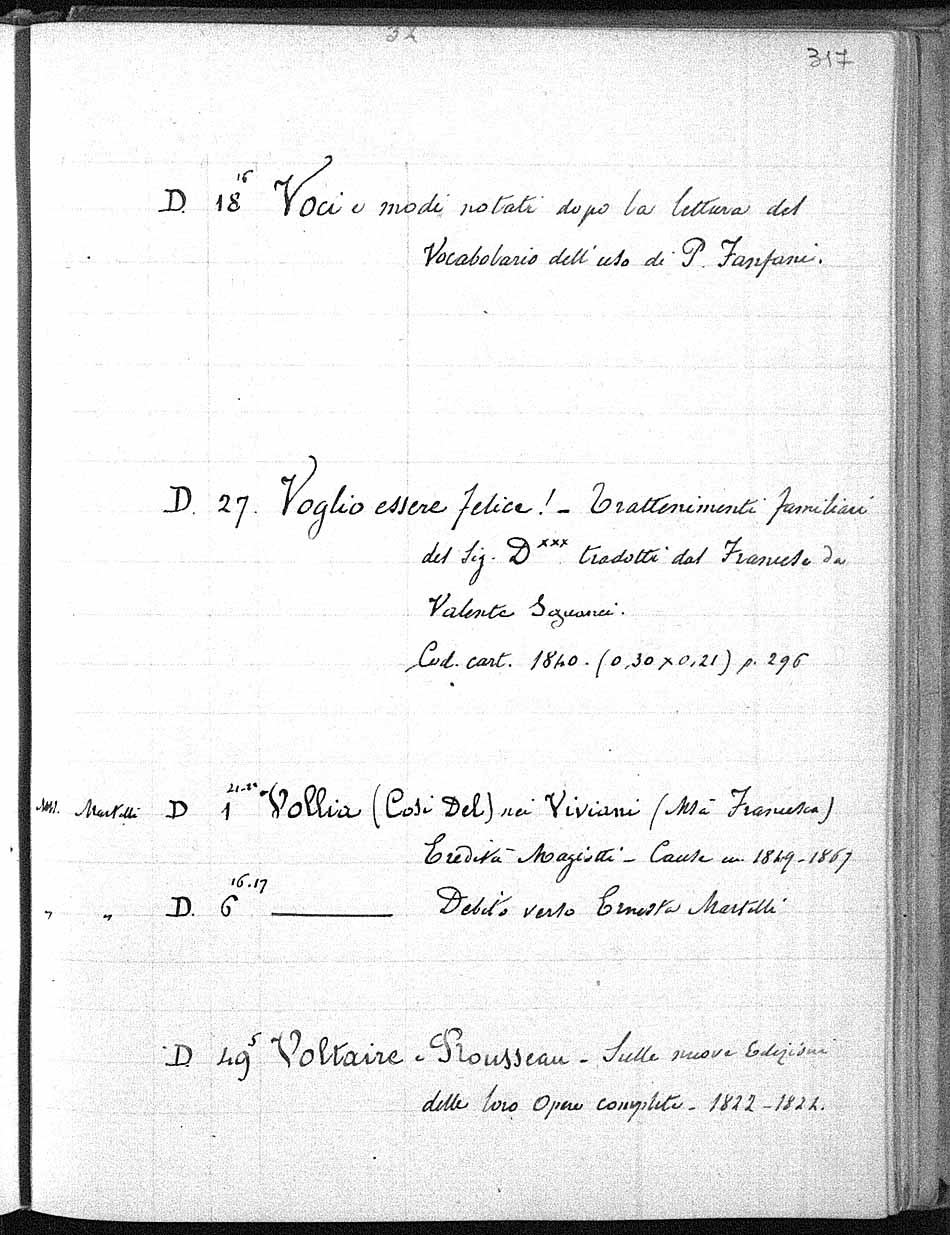 317
D. 18 16 Voci e modi notati dopo la lettura del
Vocabolario dell'uso di P. Fanfani.
D. 27. Voglio essere felice! - Trattenimenti familiari
del Sig. D xxx tradotti dal Francese da
Valente
Cod. cart. 1840. (0,30 x 0,21) p. 296
Mss. Martelli D 1 Vollia (Cosi Del) nei Viviani (Mssa Francesca)
Eredità Magiotti - Cause 1849-1867
" " D. 6 16.17 ———— Debito verso Ernesta Martelli
D. 49 5 Voltaire e Rousseau - Sulle nuove Edizioni
delle loro Opere complete - 1822-1824.